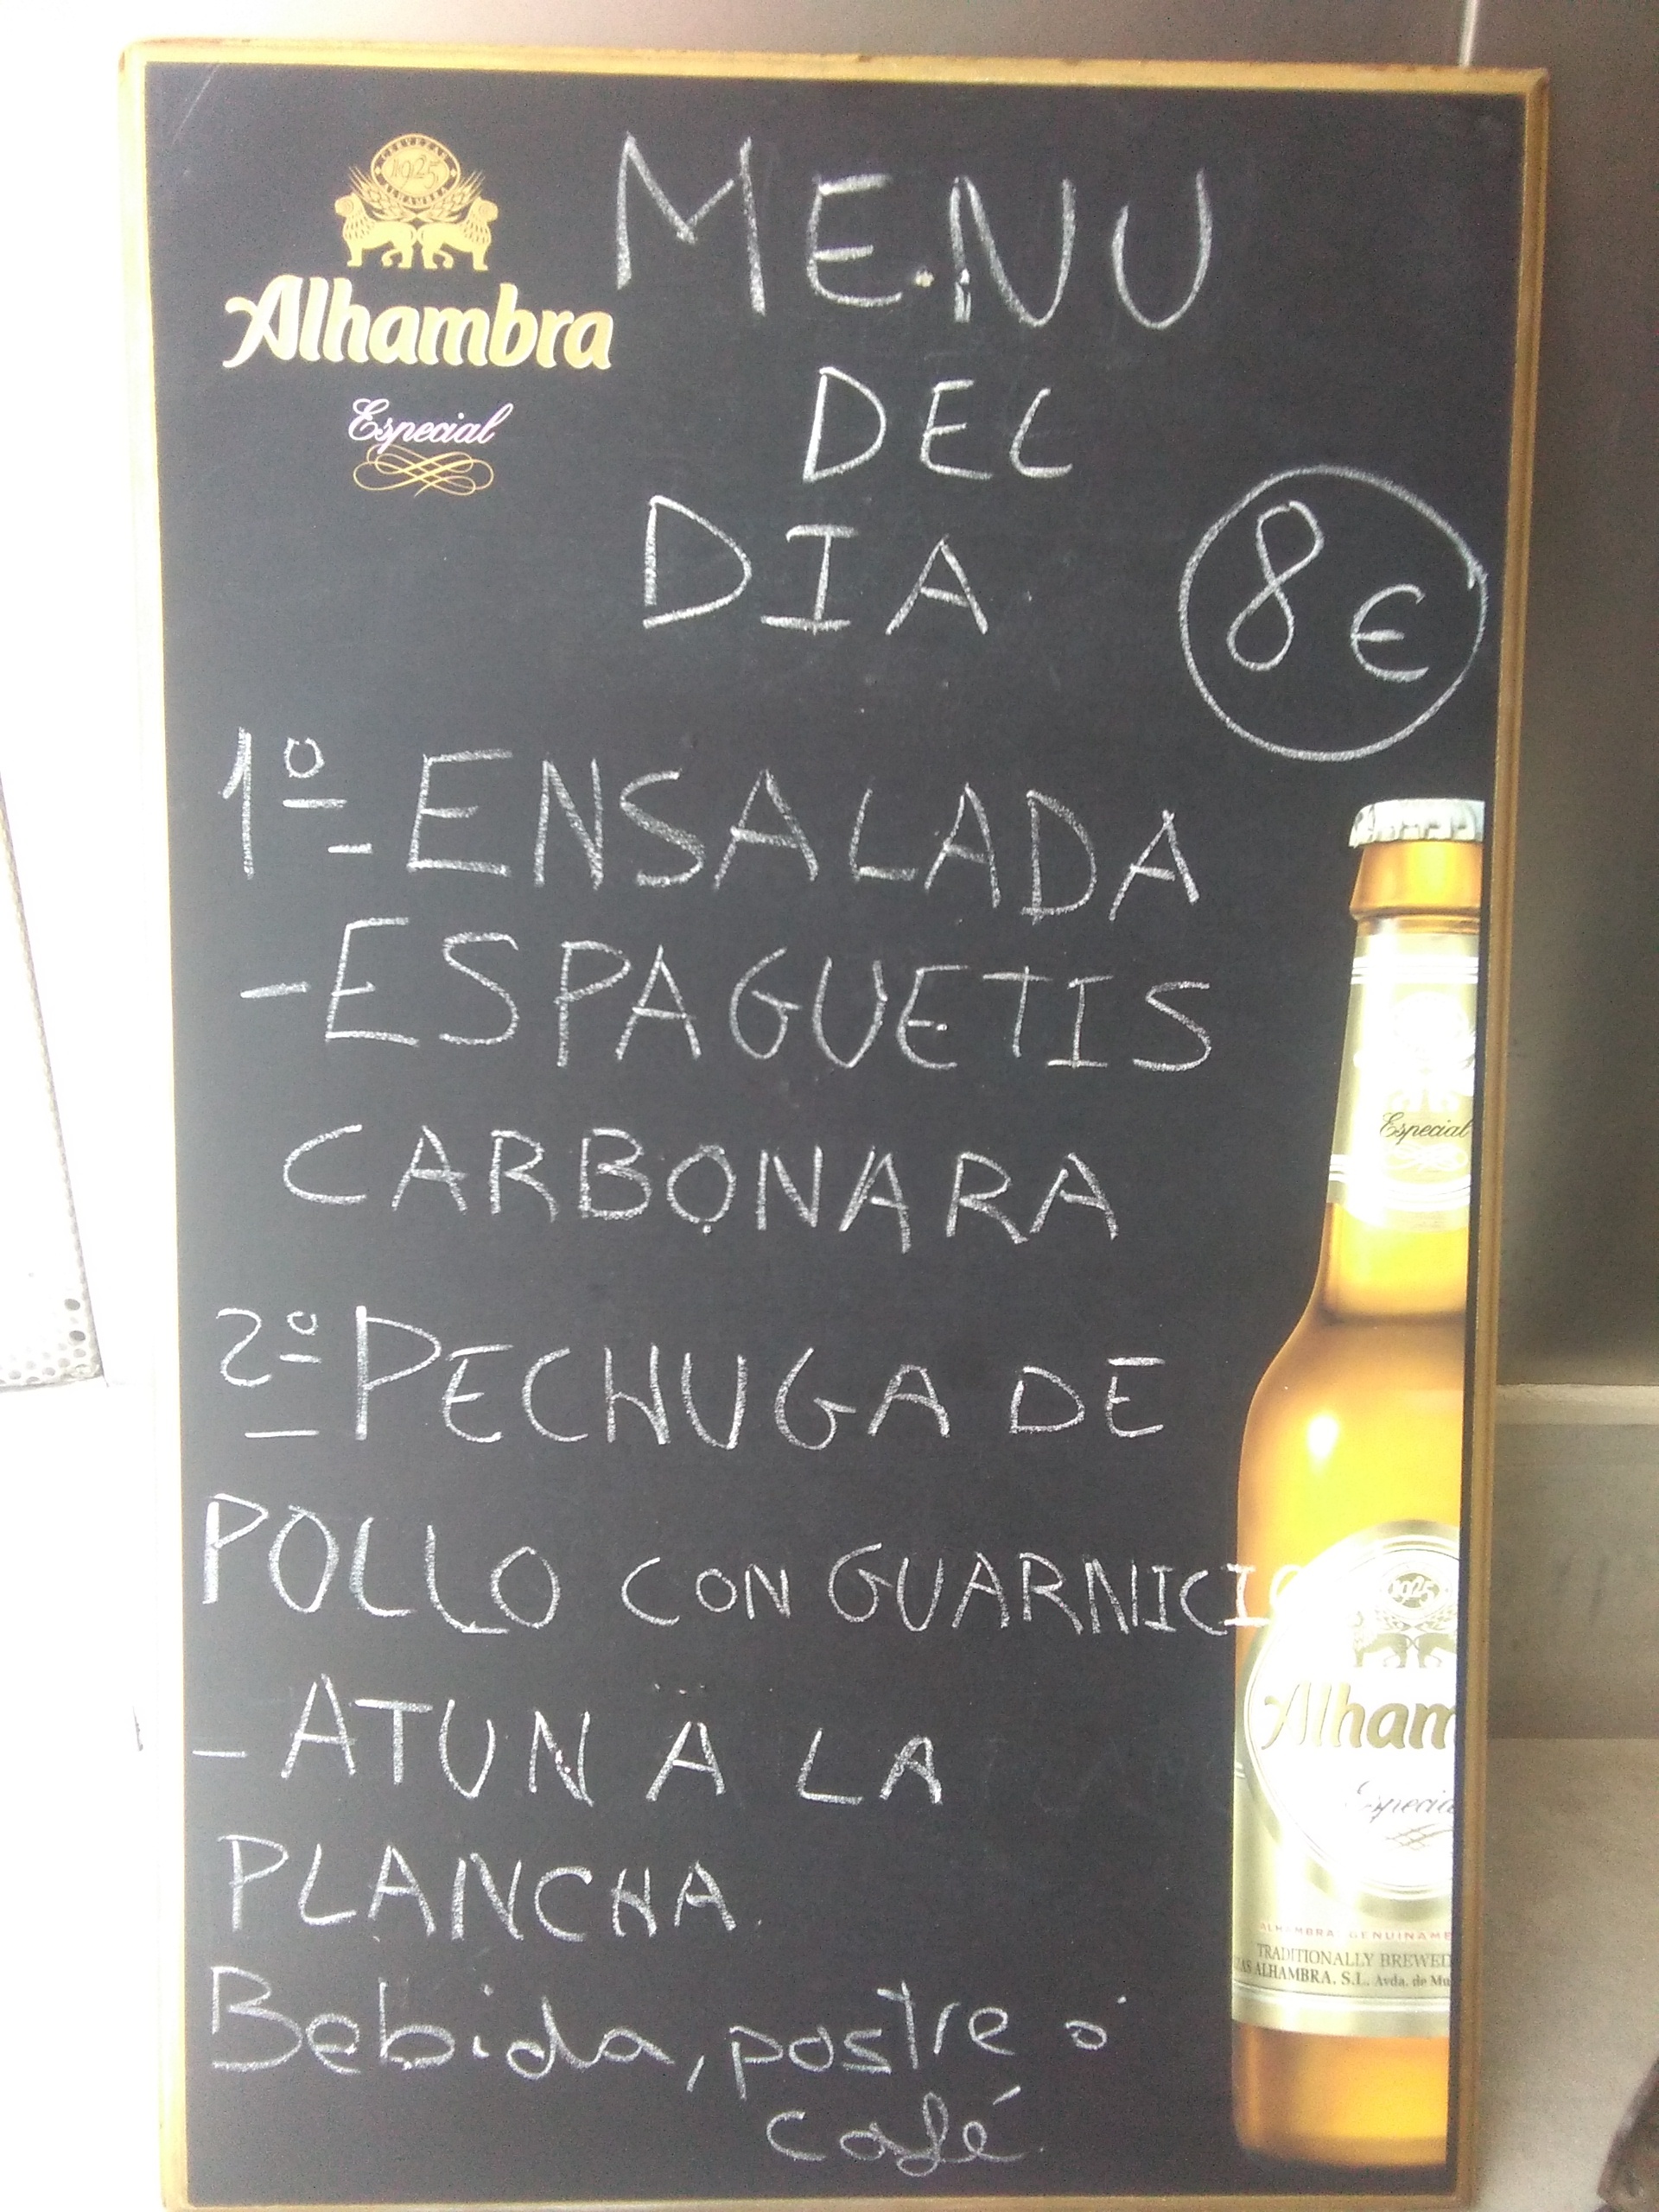 CERVEZAS
1925
ALHAMBRA
Alhambra
Especial
MENU
DEL
DIA
8€
1º- ENSALADA
-ESPAGUETIS
CARBONARA
2º
-PECHUGA DE
POLLO CON GUARNICIO
-ATUN A LA
PLANCHA
Bebida, postre ó
café
Especial
1925
Alham
Especia
ALHAMBRA GENUINAME
TRADITIONALLY BREWED
ZAS ALHAMBRA, S.L. Avda. de Mu